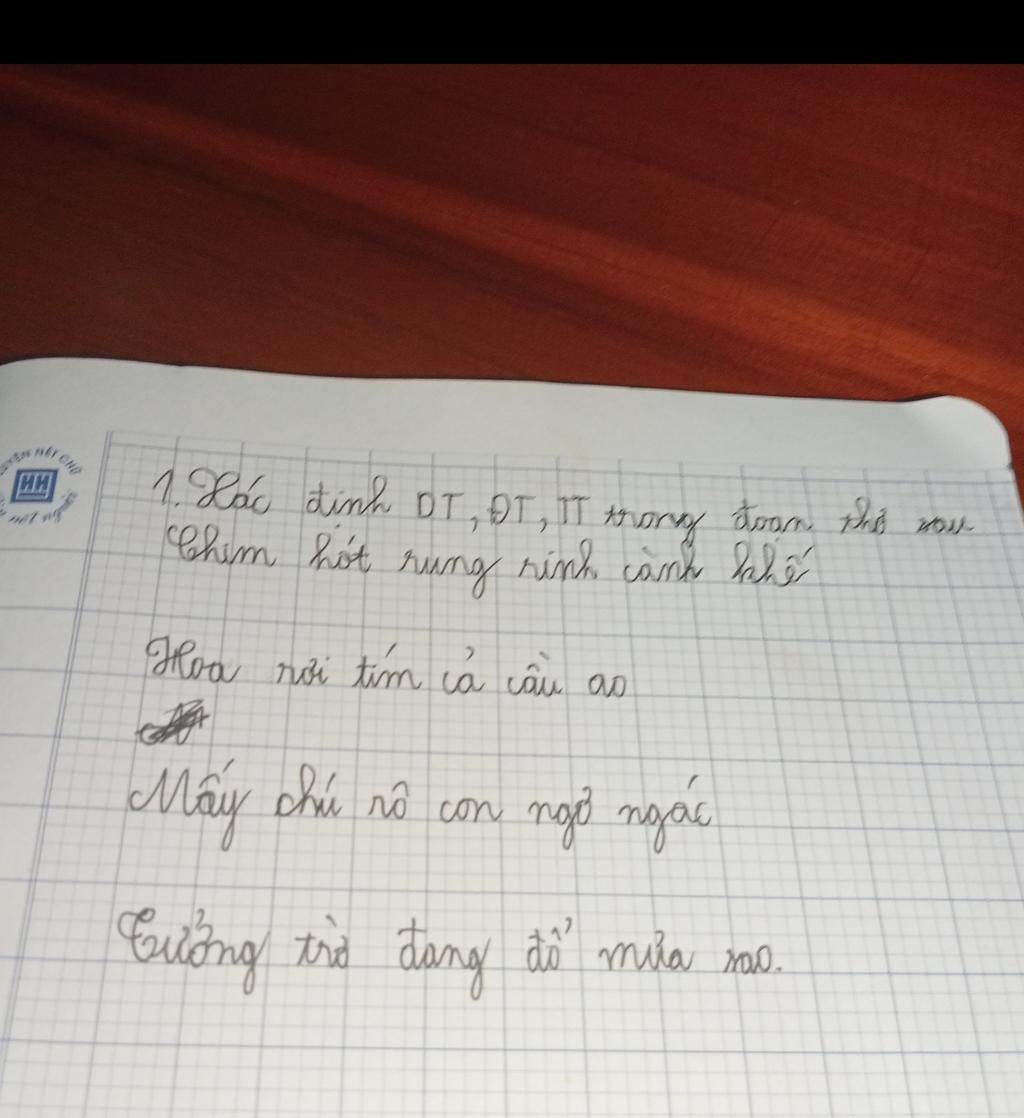 1. Xác định DT, ĐT, TT trong đoạn thơ sau
Chim hót rung rinh cành khế
Hoa rơi tím cả cầu ao
Mấy chú rô con ngơ ngác
Tưởng trời đang đổ mưa sao.
NÉT CHỮ
HH